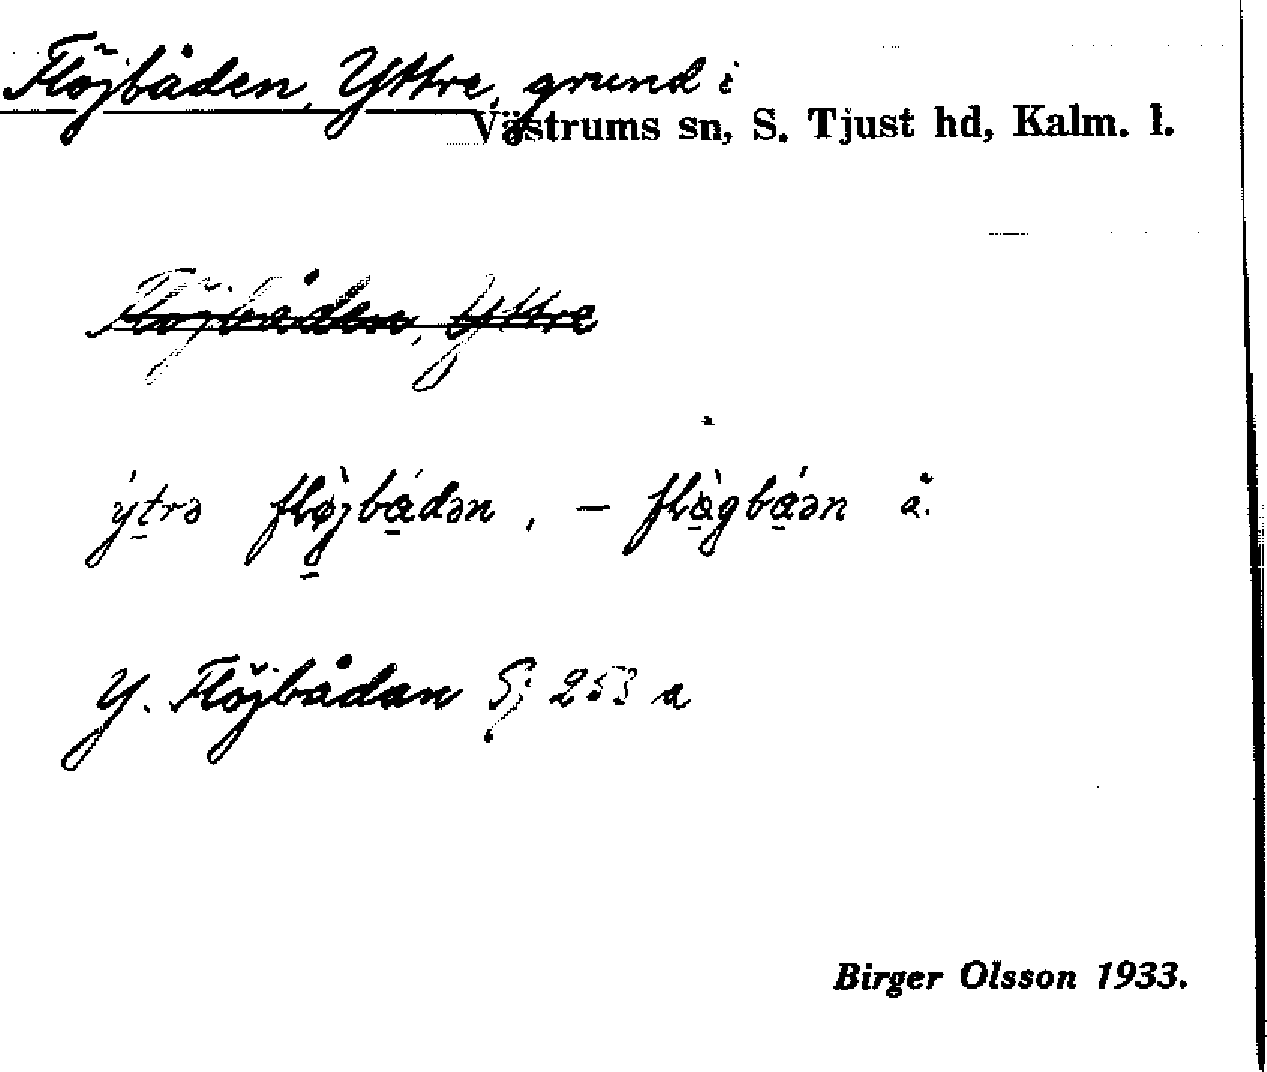 Flöjbåden, Yttre, grund i
Västrums sn, S. Tjust hd, Kalm. l.
Flöjbåden, Yttre
ýtrə flø̀jbádən, – flàgbáən å.
Y. Flöjbådan Sj 253 a
Birger Olsson 1933.